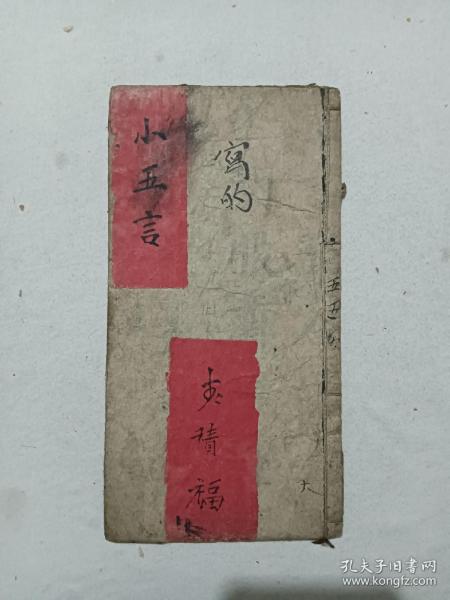 小五言
寫的
積福
五
大
孔夫子旧书网
www.kongfz.com